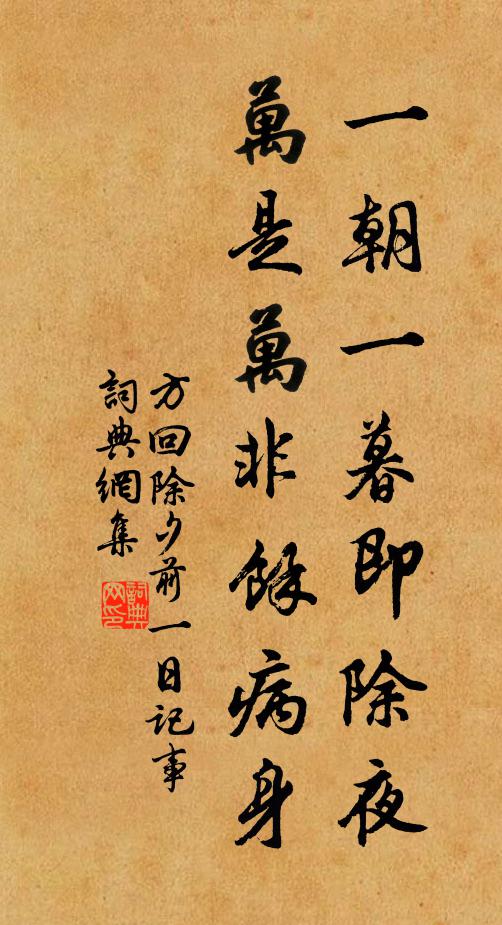 一朝一暮即除夜
萬是萬非餘病身
方回除夕前一日記事
詞典網集
詞典網印